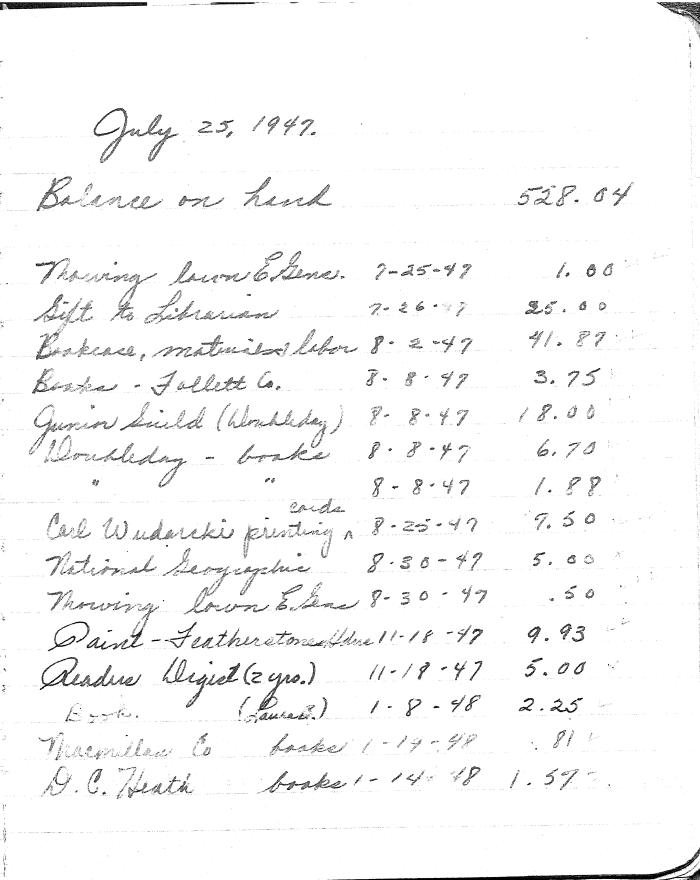 July 25, 1947.
Balance on hand 528.04
Mowing lawn E. Gens. 7-25-47 1.00
Gift to Librarian 7-26-47 25.00
Bookcase, material & labor 8-2-47 41.87
Books - Follett Co. 8-8-47 3.75
Junior Guild (Doubleday) 8-8-47 18.00
Doubleday - books 8-8-47 6.70
" " 8-8-47 1.88
cards
Carl Wudarski printing ^ 8-25-47 7.50
National Geographic 8-30-47 5.00
Mowing lawn E. Gens 8-30-47 .50
Paint - Featherstone Hdwe 11-18-47 9.93
Readers Digest (2 yrs.) 11-18-47 5.00
Book. 1-8-48 2.25
Macmillan Co books 1-14-48 .81
D. C. Heath books 1-14-48 1.57